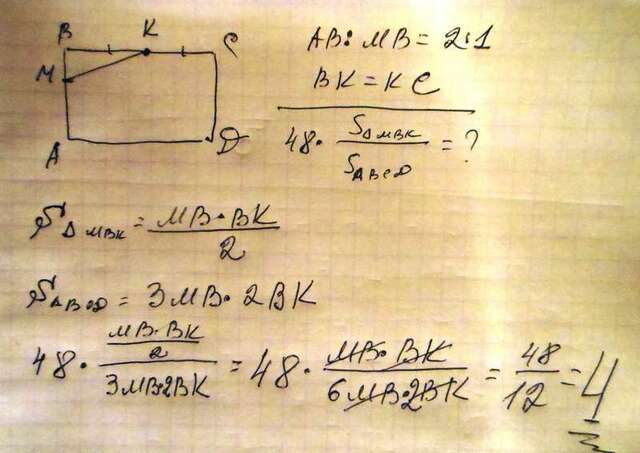 B K C
M
A D
AB:MB = 2:1
BK = KC
48 · S△MBK / SABCD = ?
S△MBK = MB·BK / 2
SABCD = 3MB·2BK
48 · (MB·BK / 2) / 3MB·2BK = 48 · MB·BK / 6MB·2BK = 48 / 12 = 4